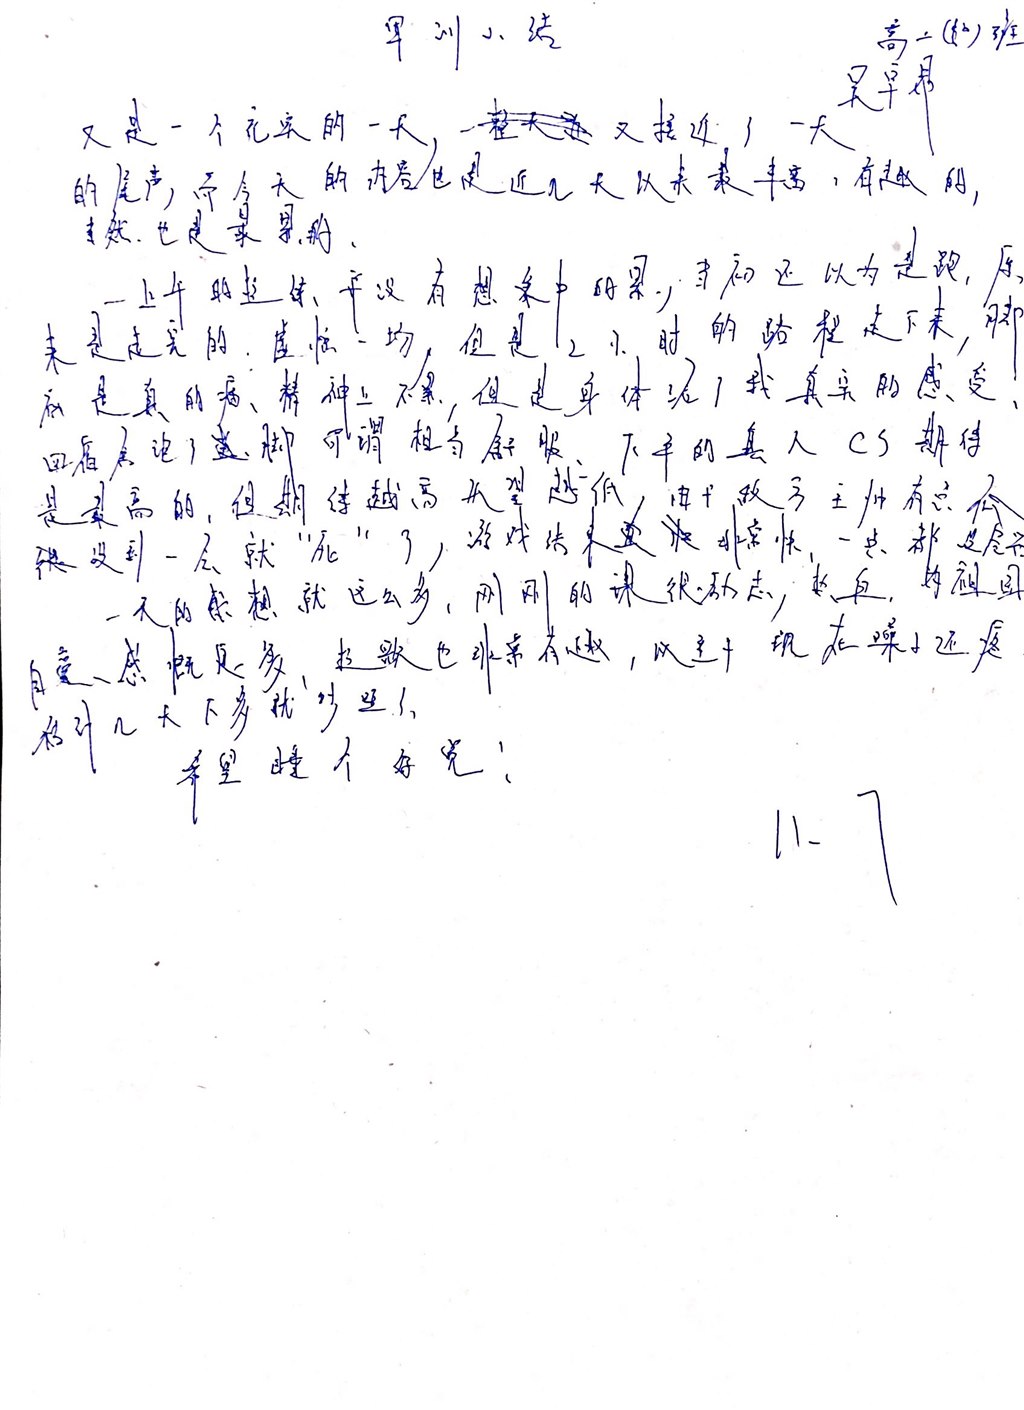 军训小结
高二(七)班
吴早
又是一个充实的一天,又接近了一天
的尾声,而今天的内容也是近几天以来最丰富,有趣的,
当然.也是最累的.
一上午的拉练、并没有想象中的累,当初还以为是跑,原
来是走完的.虚惊一场,但是2小时的路程走下来,脚
底是真的痛、精神上不累,但是身体给了我真实的感受、
回宿舍泡了脚可谓相当舒服、下午的真人CS期待
是最高的,但期待越高失望越低,由于敌方主帅有点
没到一会就"死"了,游戏结束非常快,一共都是
一天的感想就这么多,刚刚的课很励志,热血,为祖国
自豪、感慨良多,拉歌也非常有趣,以至于现在嗓子还疼
才几天下多就了、
希望睡个好觉!
11-7